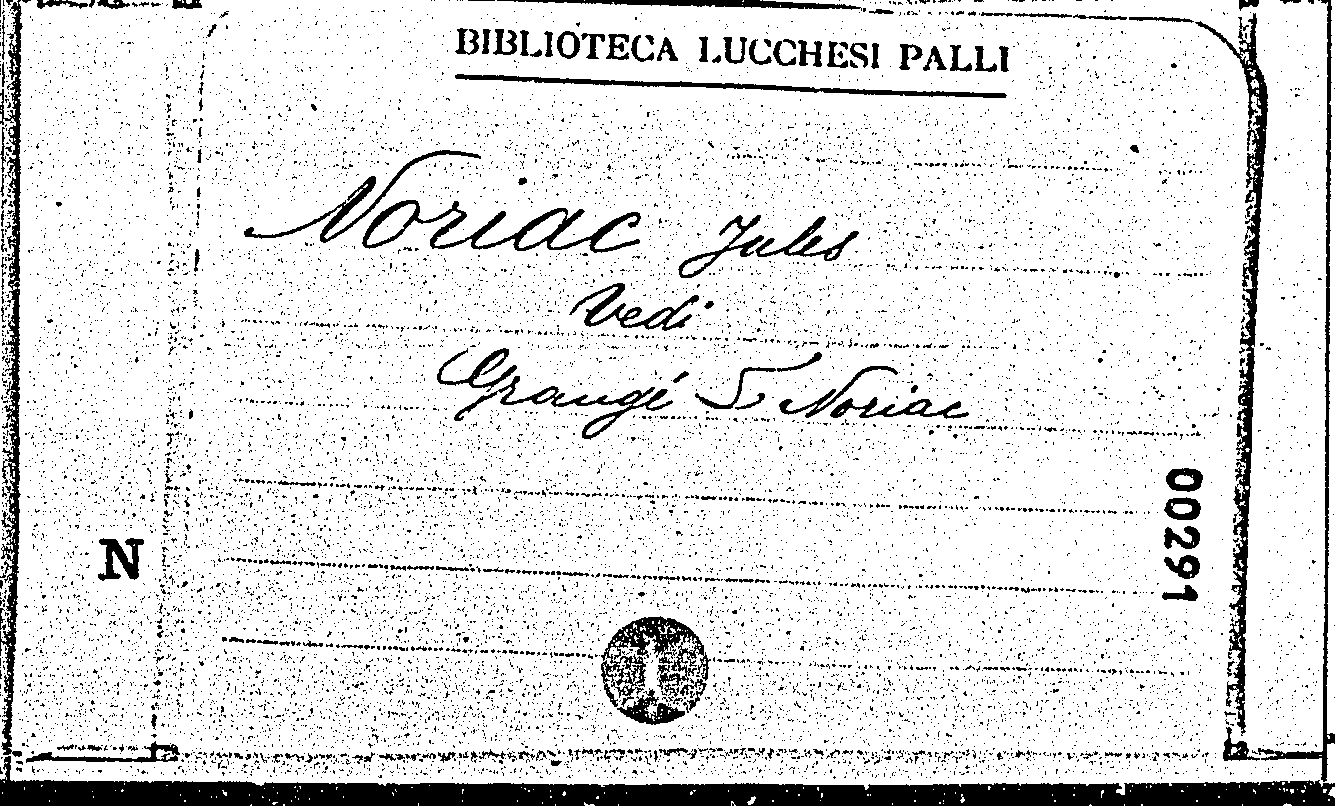 BIBLIOTECA LUCCHESI PALLI
Noriac Jules
Vedi
Grangé E, Noriac
N
00291